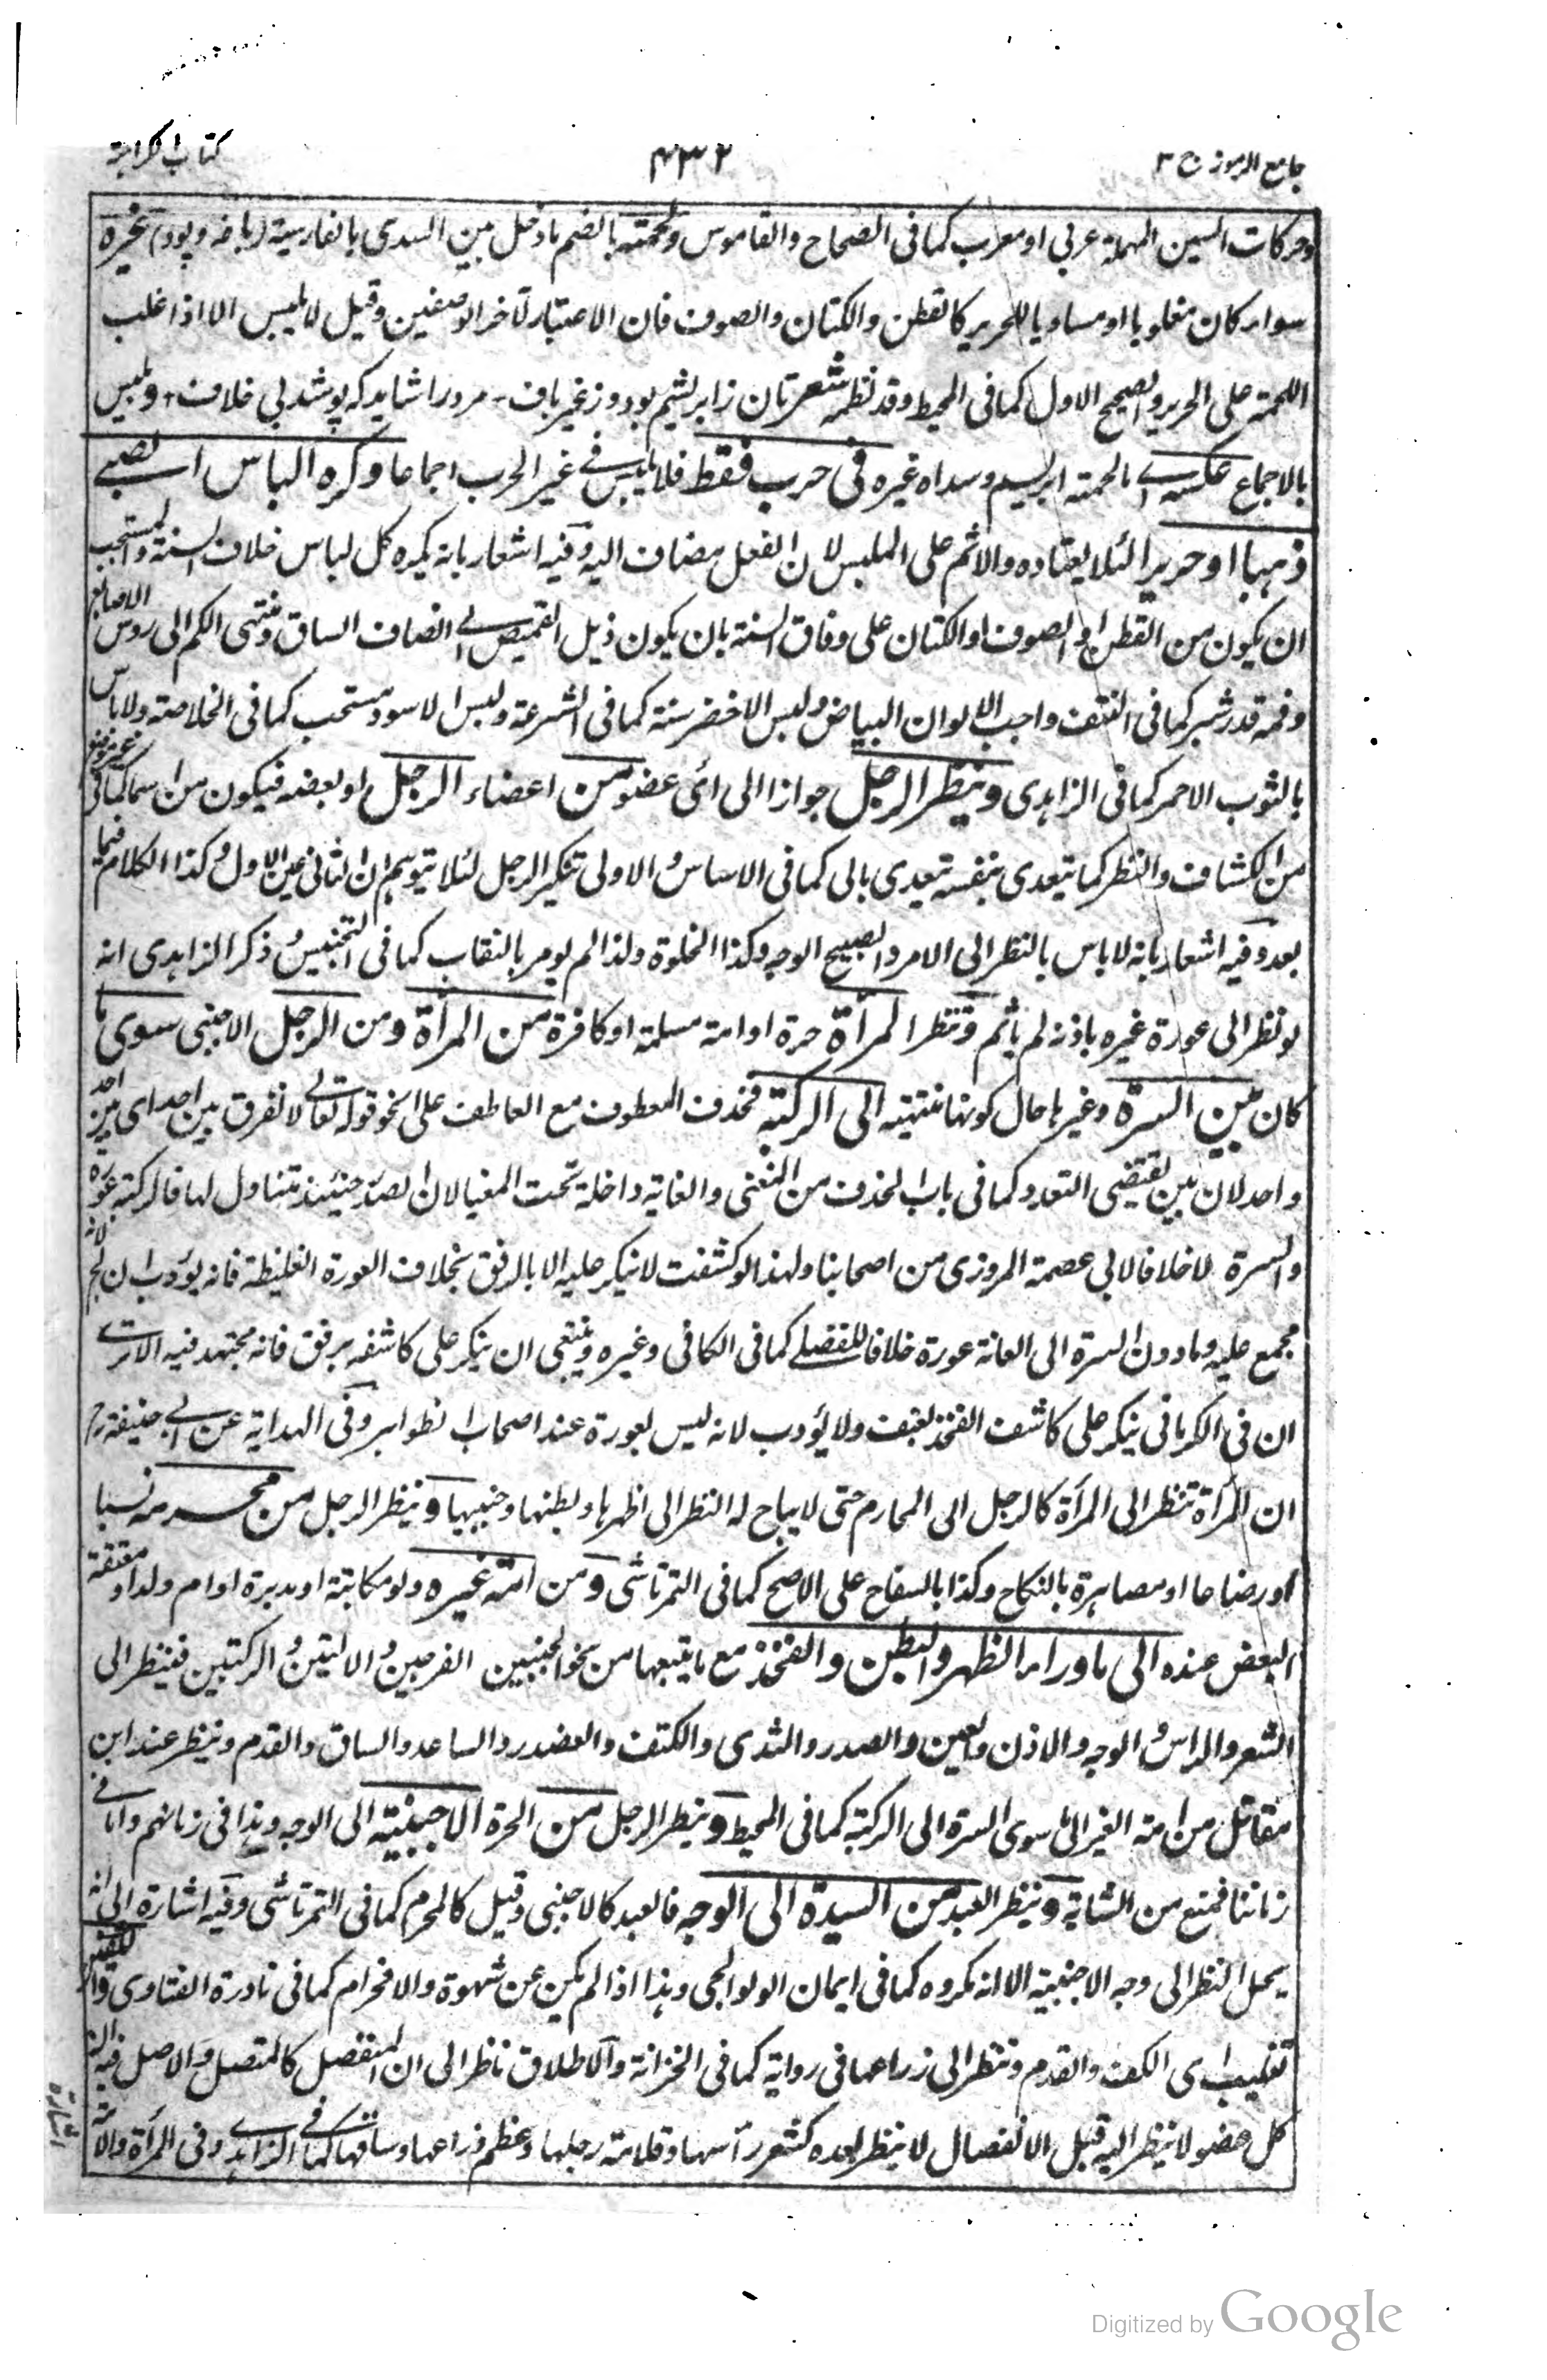 جامع الرموز ج ٣
٤٣٢
كتاب الكراهة
وحركات السين المهملة عربى او معرب كما فى الصحاح والقاموس ولحمته بالضم ما دخل بين السدى بالفارسية (بافه وپود) غيره
سواء كان مغلوبا او مساويا للحرير كالقطن والكتان والصوف فان الاعتبار لآخر الوصفين وقيل لا يلبس الا اذا غلب
اللحمة على الحرير والصحيح الاول كما فى المحيط وقد نظمه شعر تان ز ابريشم بود و ز غير باف - مرد را شايد كه پوشد بى خلاف + ويلبس
بالاجماع عكسه اى ما لحمته ابريسم وسداه غيره فى حرب فقط فلا يلبس فى غير الحرب اجماعا وكره الباس الصبى
ذهبا او حريرا لئلا يعتاده والاثم على الملبس لان الفعل مضاف اليه وفيه اشعار بانه يكره كل لباس خلاف السنة والمستحب
ان يكون من القطن او الصوف او الكتان على وفاق السنة بان يكون ذيل القميص الى انصاف الساق ومنتهى الكم الى روس الاصابع
وفمه قدر شبر كما فى النتف واحب الالوان البياض ولبس الاخضر سنة كما فى الشرعة ولبس الاسود مستحب كما فى الخلاصة ولا باس
بالثوب الاحمر كما فى الزاهدى وينظر الرجل جوازا الى اى عضو من اعضاء الرجل او بعضه فيكون من اسما كما فى
من الكشاف والنظر كما يتعدى بنفسه يتعدى بالى كما فى الاساس والاولى تنكير الرجل لئلا يتوهم ان الثانى عين الاول وكذا الكلام فيما
بعد وفيه اشعار بانه لا باس بالنظر الى الامرد الصبيح الوجه وكذا الخلوة ولذا لم يومر بالنقاب كما فى التجنيس وذكر الزاهدى انه
لو نظر الى عورة غيره باذنه لم ياثم وتنظر المرأة حرة او امة مسلمة او كافرة من المرأة ومن الرجل الاجنبى سوى ما
كان بين السرة وغيرها حال كونها منتهية الى الركبة فحذف المعطوف مع العاطف على نحو قوله تعالى لا نفرق بين احد اى بين احد
واحد لان بين يقتضى التعدد كما فى باب الحذف من المغنى والغاية داخلة تحت المغيا لان الصدر حينئذ متناول لها فالركبة عورة
والسرة لا خلافا لابى عصمة المروزى من اصحابنا ولهذا لو كشفت لا ينكر عليه الا بالرفق بخلاف العورة الغليظة فانه يؤدب ان لج لانه
مجمع عليه وما دون السرة الى العانة عورة خلافا للفضلى كما فى الكافى وغيره وينبغى ان ينكر على كاشفه برفق فانه مجتهد فيه الا ترى
ان فى الكرمانى ينكر على كاشف الفخذ بعنف ولا يؤدب لانه ليس بعورة عند اصحاب الظواهر وفى الهداية عن ابى حنيفة رح
ان المرأة تنظر الى المرأة كالرجل الى المحارم حتى لا يباح له النظر الى ظهرها وبطنها وجنبيها وينظر الرجل من محرمه نسبا
او رضاعا او مصاهرة بالنكاح وكذا بالسفاح على الاصح كما فى التمرتاشى ومن امة غيره ولو مكاتبة او مدبرة او ام ولد او معتقة
البعض عنده الى ما وراء الظهر والبطن والفخذ مع ما يتبعها من نحو الجنبين الفرجين والاليتين والركبتين فينظر الى
الشعر والراس والوجه والاذن والعين والصدر والثدى والكتف والعضد والساعد والساق والقدم وينظر عند ابن
مقاتل من امة الغير الى ما سوى السرة الى الركبة كما فى المحيط وينظر الرجل من الحرة الاجنبية الى الوجه وهذا فى زمانهم واما فى
زماننا فمنع من الشابة وينظر العبد من السيدة الى الوجه فالعبد كالاجنبى وقيل كالمحرم كما فى التمرتاشى وفيه اشارة الى انه
يحل النظر الى وجه الاجنبية الا انه مكروه كما فى ايمان الولوالجى وهذا اذا لم يكن عن شهوة والا فحرام كما فى نادرة الفتاوى
تغليب اى الكف والقدم وتنظر الى زراعها فى رواية كما فى الخزانة والاطلاق ناظر الى ان المنفصل كالمتصل والاصل فيه ان
كل عضو لا ينظر اليه قبل الانفصال لا ينظر بعده كشعر رأسها وقلامة رجلها وعظم ذراعها وساقها كما فى الزاهدى وفى المرأة والامة
اشارة
Digitized by Google